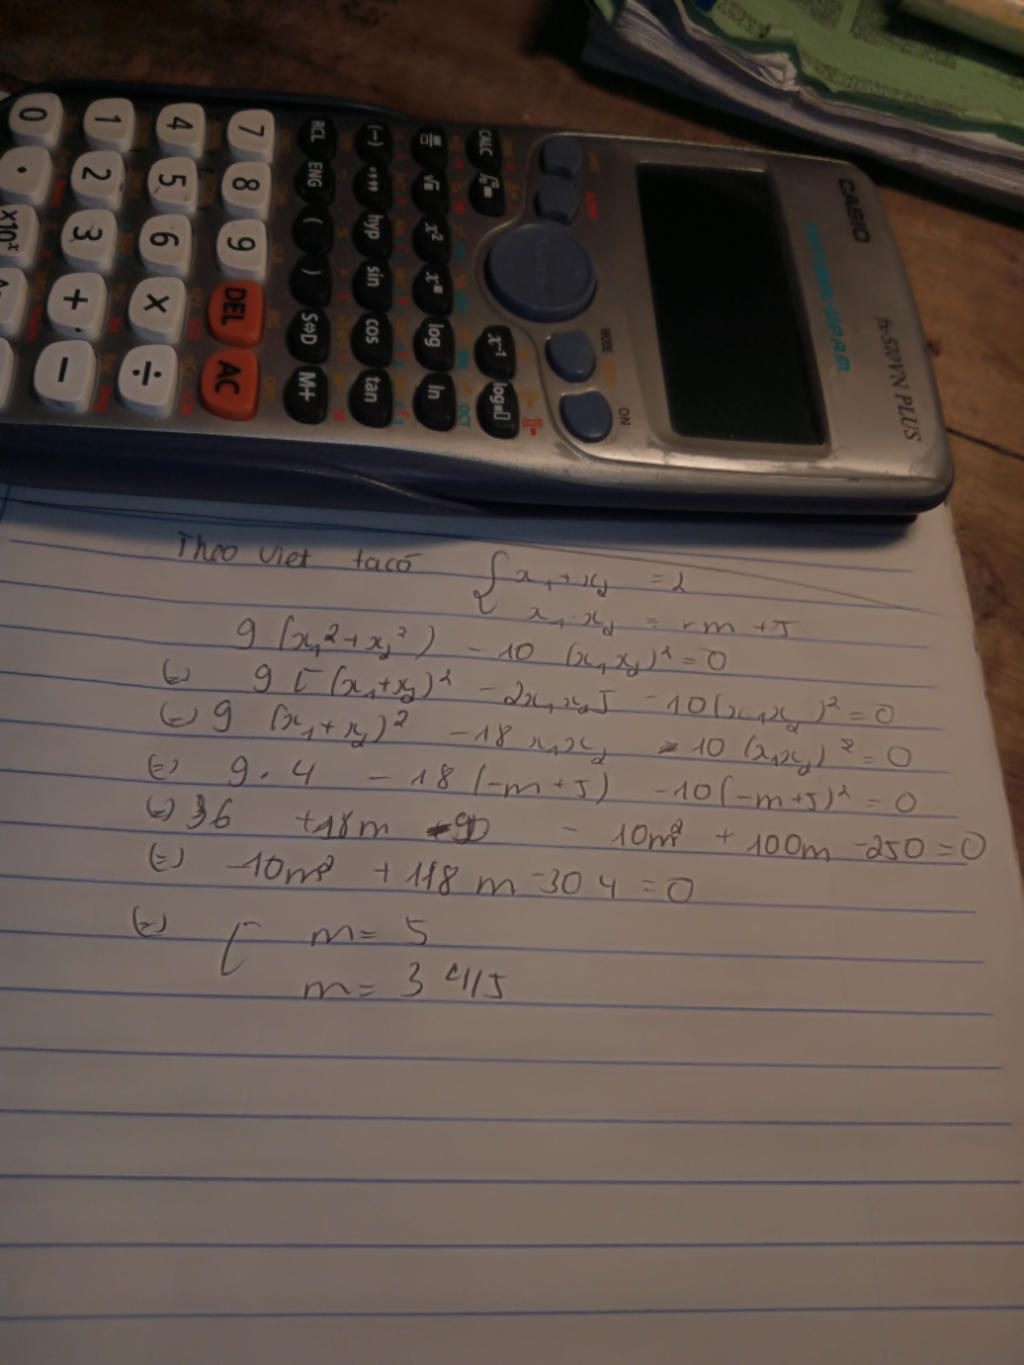 CASIO
fx-570VN PLUS
MODE
ON
CALC
x⁻¹
log
√
x²
log
ln
(-)
hyp
sin
cos
tan
RCL
ENG
(
)
S⇔D
M+
7
8
9
DEL
AC
4
5
6
×
÷
1
2
3
+
−
0
.
×10ˣ
Theo viet tacó { x₁ + x₂ = 2
x₁ . x₂ = -m + 5
9 (x₁² + x₂²) - 10 (x₁x₂)² = 0
(=) 9 [ (x₁+x₂)² - 2x₁x₂] - 10(x₁x₂)² = 0
(=) 9 (x₁ + x₂)² - 18 x₁x₂ - 10 (x₁x₂)² = 0
(=) 9 . 4 - 18 (-m + 5) - 10 (-m+5)² = 0
(=) 36 + 18m - 90 - 10m² + 100m - 250 = 0
(=) -10m² + 118 m - 304 = 0
(=) [ m = 5
m = 3 4/15